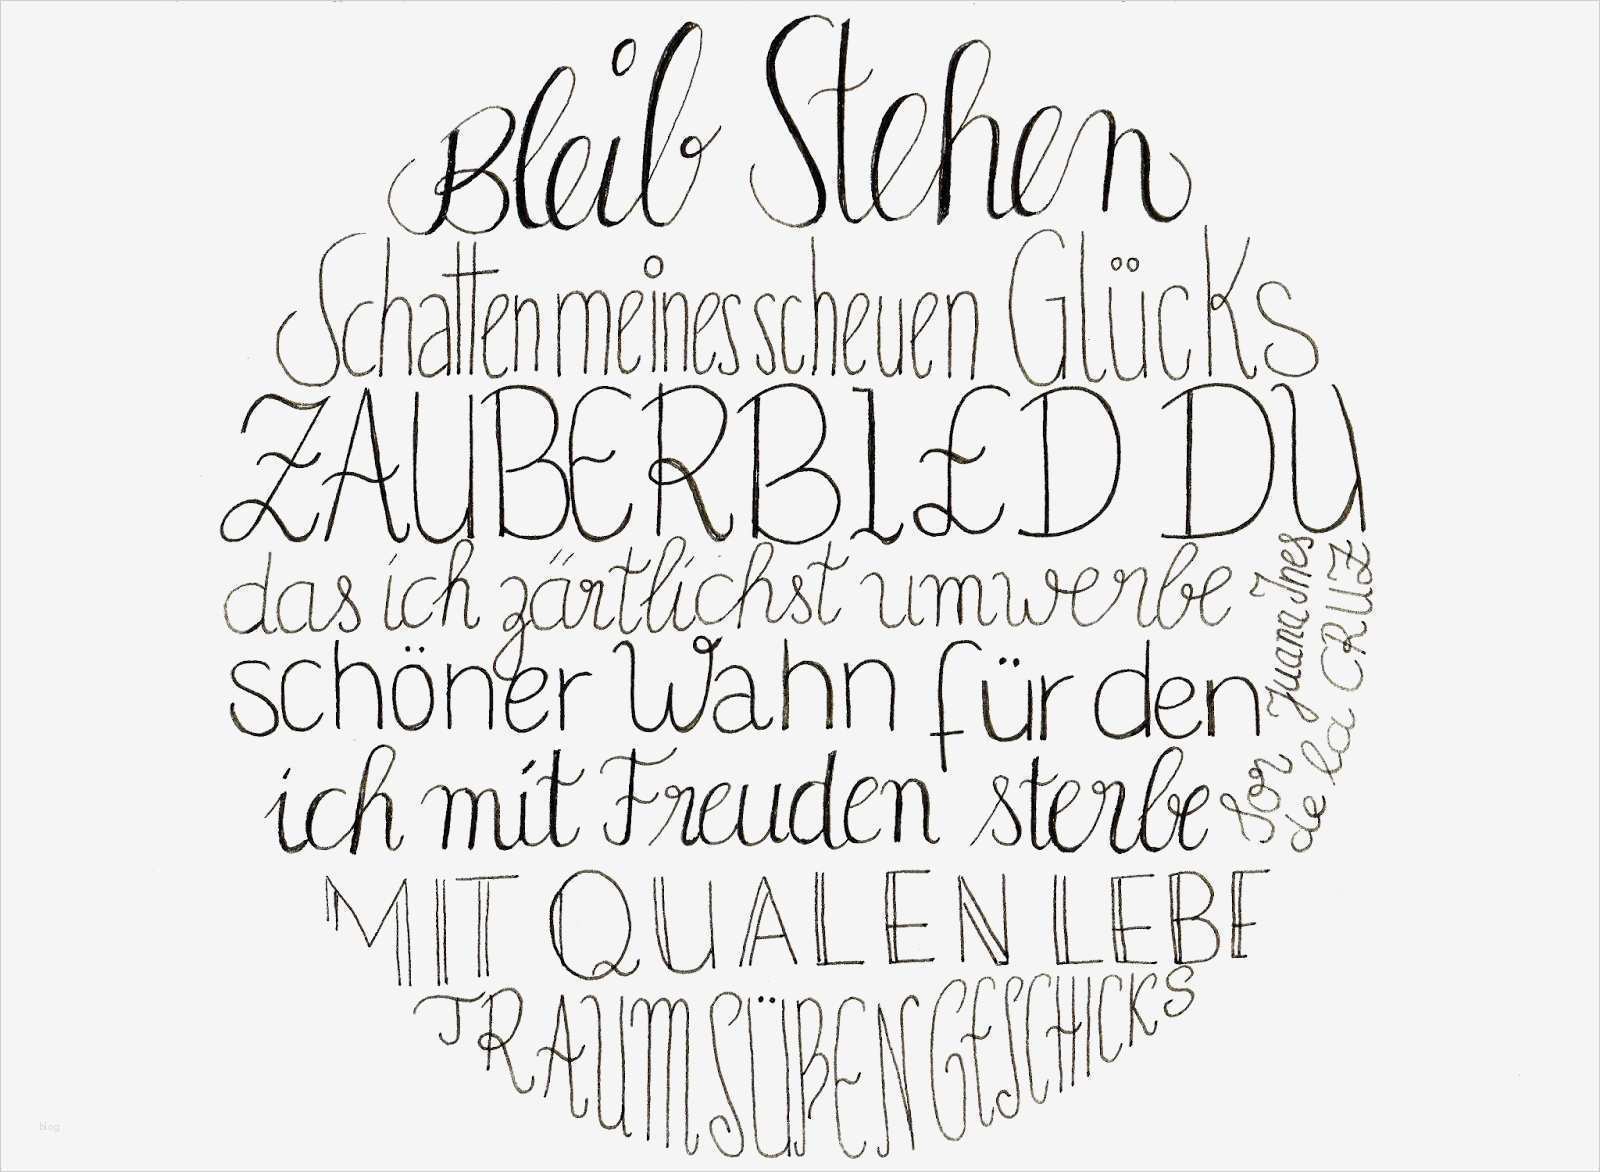 Bleib Stehen
Schatten meines scheuen Glücks
ZAUBERBLED DU
das ich zärtlichst umwerbe
schöner Wahn für den
ich mit Freuden sterbe
MIT QUALEN LEBE
TRAUM SÜßEN GESCHICKS
Sor Juana Ines
de la CRUZ
blog